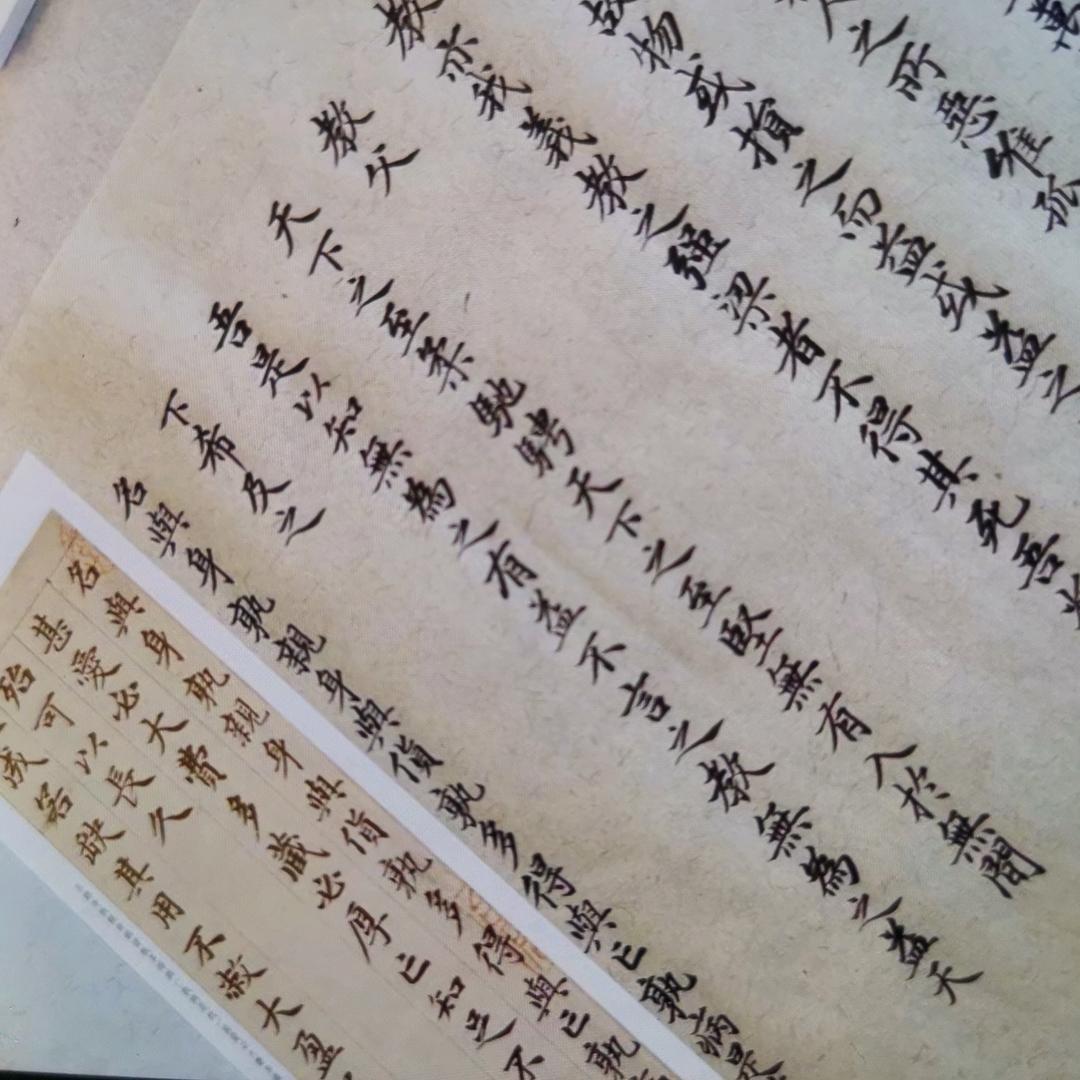 人之所惡惟孤
故物或損之而益或益之
教亦我義教之強梁者不得其死吾
教父
天下之至柔馳騁天下之至堅無有入於無間
吾是以知無為之有益不言之教無為之益天
下希及之
名與身孰親身與貨孰多得與亡孰病是
名與身孰親身與貨孰多得與亡孰
甚愛必大費多藏必厚亡知足不
殆可以長久
成若缺其用不敝大盈